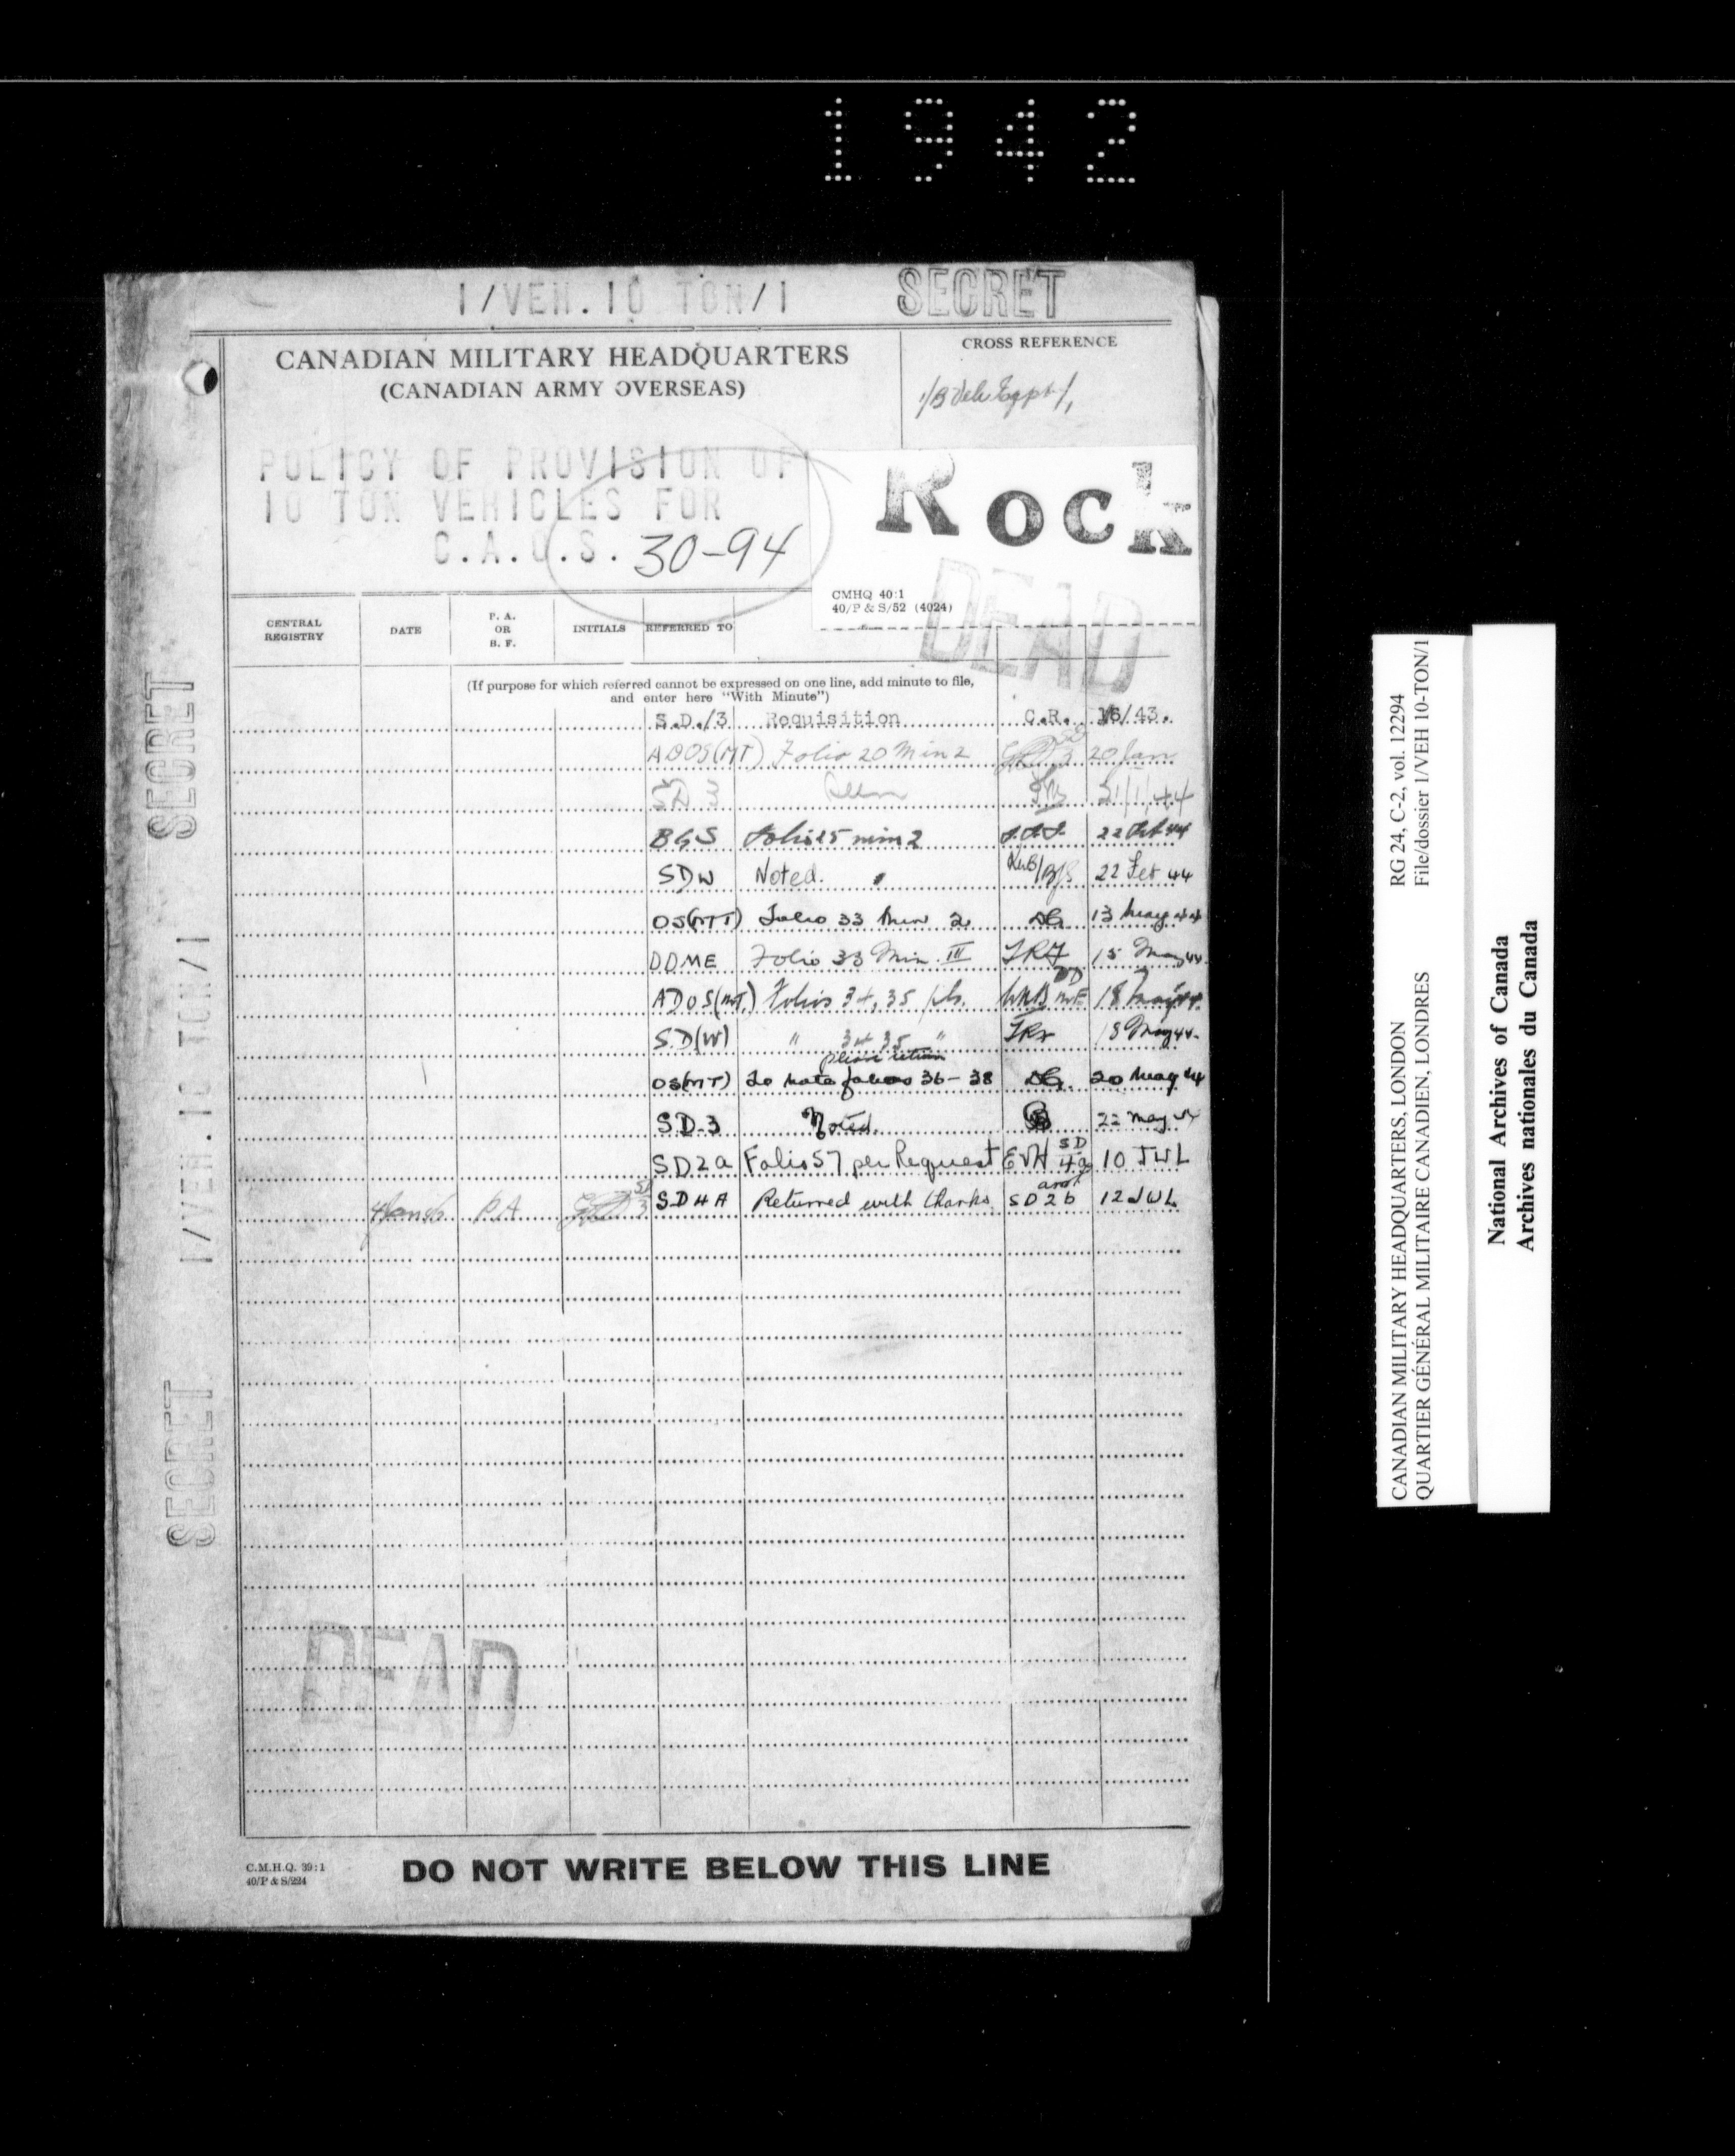 1942
1/VEH.10 TON/1 SECRET
CANADIAN MILITARY HEADQUARTERS
(CANADIAN ARMY OVERSEAS)
CROSS REFERENCE
POLICY OF PROVISION OF
10 TON VEHICLES FOR
C.A.O.S. 30-94
Rock
DEAD
CMHQ 40:1
40/P & S/52 (4024)
CENTRAL REGISTRY DATE P. A. OR B. F. INITIALS REFERRED TO
(If purpose for which referred cannot be expressed on one line, add minute to file,
and enter here "With Minute")
S.D./3 Requisition C.R. /43.
ADOS(MT) Folio 20 Min 2 20 Jan
SD 3 31/1/44
BGS Folio 25 min 2 22 Feb 44
SDW Noted. 22 Feb 44
OS(MT) Folio 33 Min 2 13 May 44
DDME Folio 33 Min. III 15 May 44
ADOS(MT) Folios 34, 35 pls. 18 May 44
S.D(W) " 34 35 " 18 May 44
please return
OS(MT) To note folios 36-38 20 May 44
SD-3 Noted. 22 May 44
SD2a Folio 57 per Request EVH SD 4a 10 JUL
SD4A Returned with thanks SD2b 12 JUL
PA
SECRET
1/VEH.10 TON/1
SECRET
DEAD
C.M.H.Q. 39:1
40/P & S/224
DO NOT WRITE BELOW THIS LINE
CANADIAN MILITARY HEADQUARTERS, LONDON RG 24, C-2, vol. 12294
QUARTIER GÉNÉRAL MILITAIRE CANADIEN, LONDRES File/dossier 1/VEH 10-TON/1
National Archives of Canada
Archives nationales du Canada